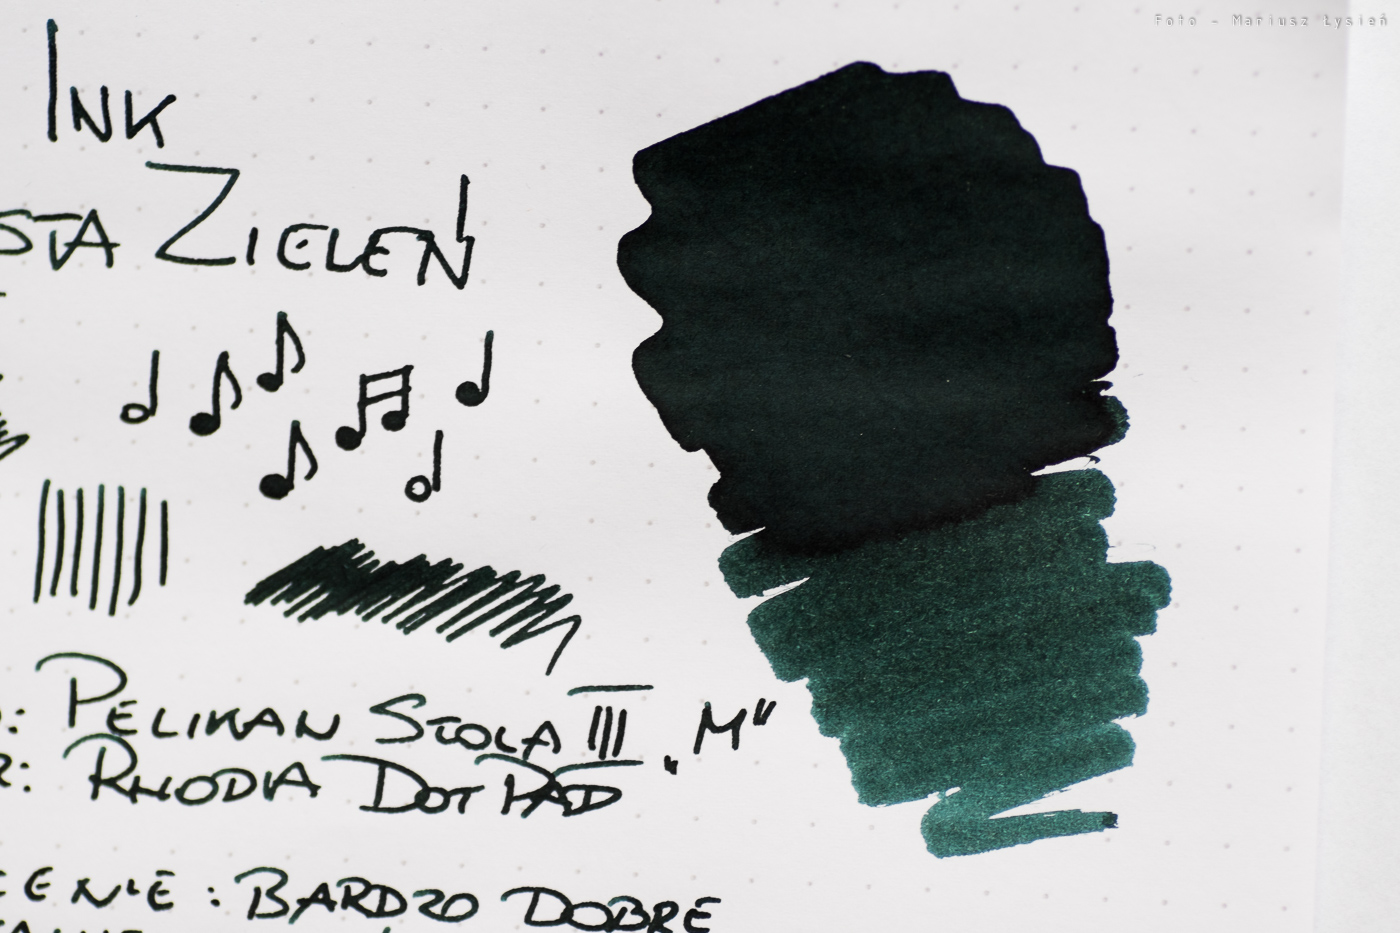 Foto - Mariusz Łysień
INK
STA ZIELEŃ
: PELIKAN STOLA III „M"
: RHODIA DOT PAD
: BARDZO DOBRE